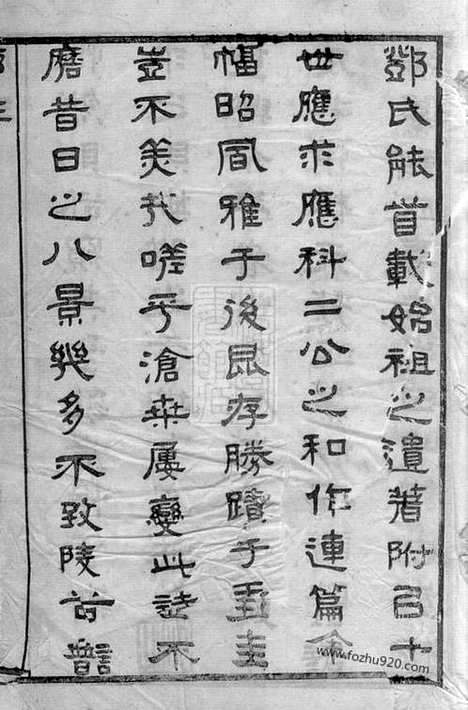 鄧氏能首載始祖之遺著附己十
世應求應科二公之和作連篇
幅昭風雅于後昆存勝蹟于
豈不美哉嗟乎滄桑屢變此不
磨昔日之八景幾多不致陵
www.fozhu920.com